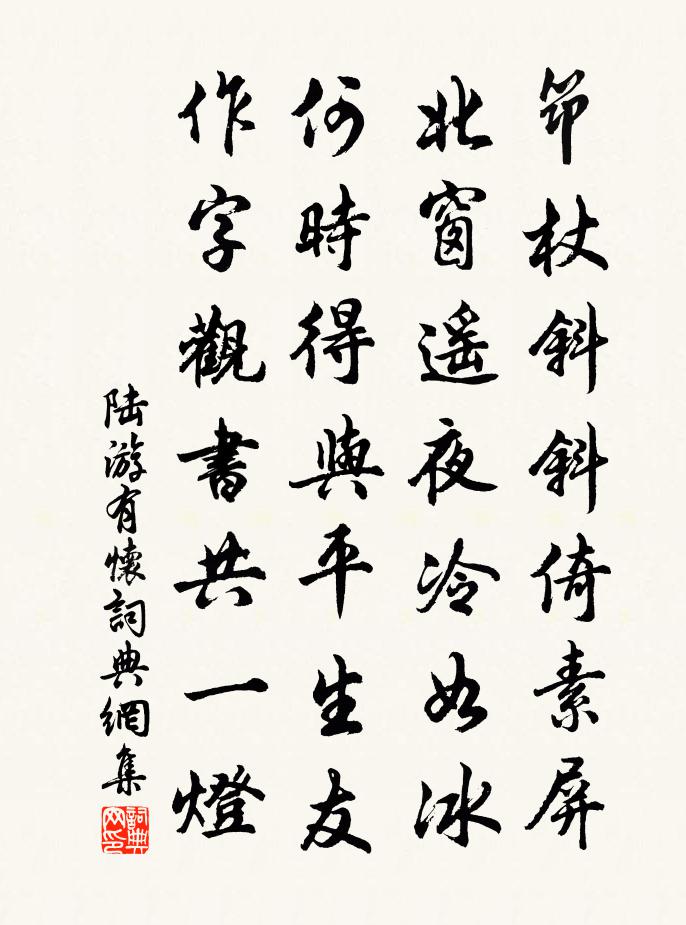 笻杖斜斜倚素屏
北窗遥夜冷如冰
何時得與平生友
作字觀書共一燈
陆游有懷詞典網集
詞典网印